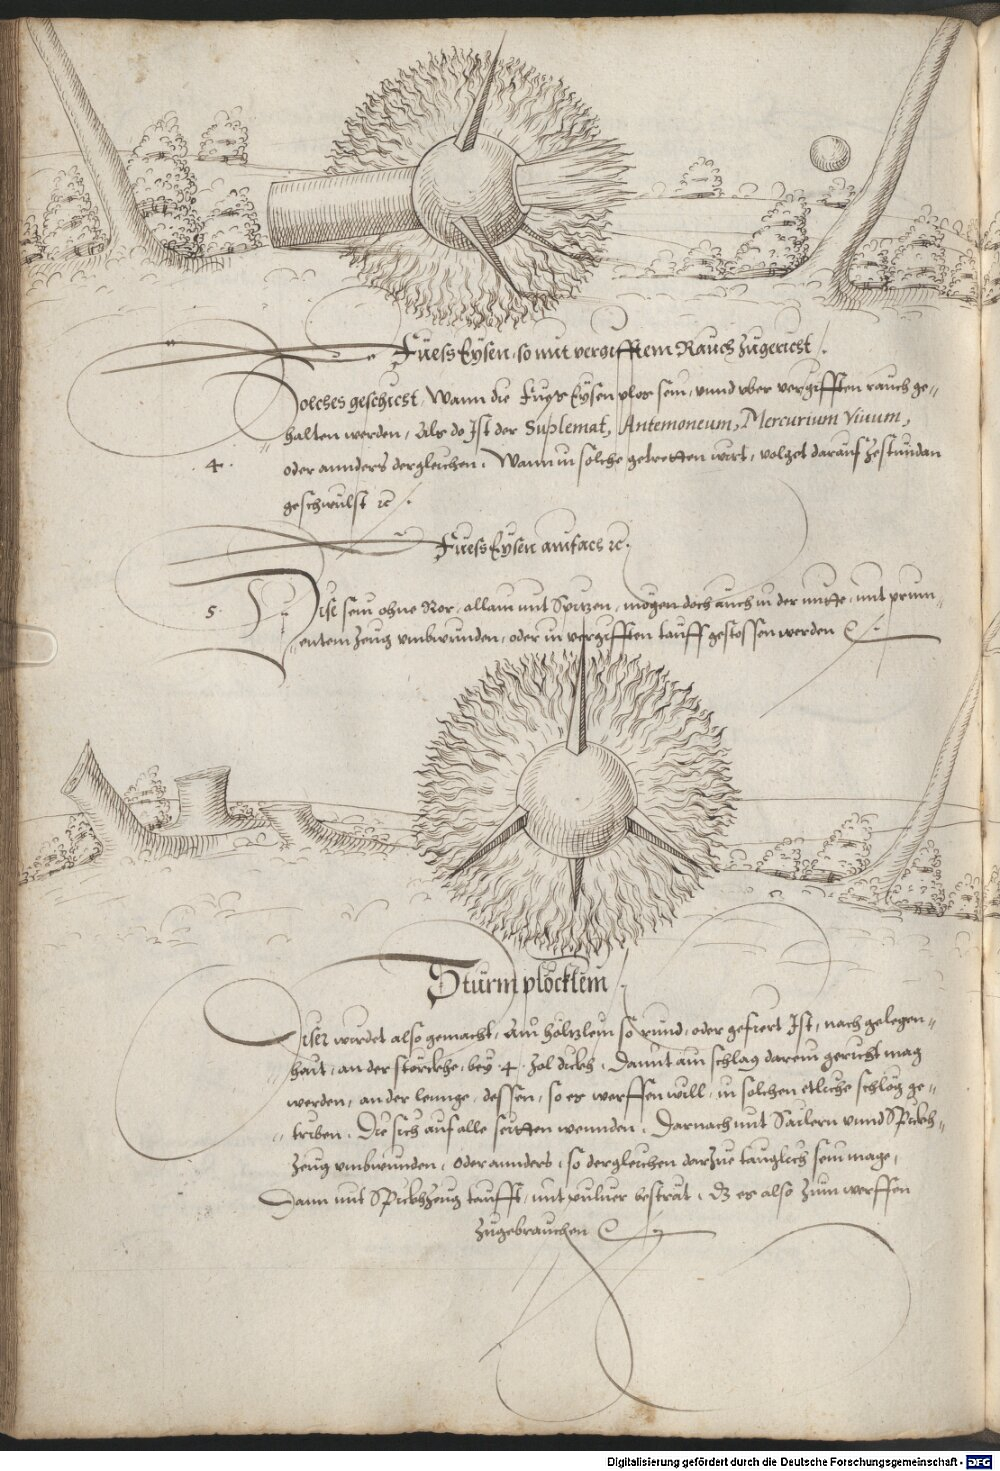 Fuess Eysen, so mit vergifftem Rauch zugericht.
Solches geschicht, Wann die Fuess Eysen plos sein, vnnd vber vergifften rauch ge=
halten werden, Als do Ist der Suplemat, Antemoneum, Mercurium Viuum,
4. oder annders dergleichen. Wann in solche getretten wirt, volget darauf Zestundan
geschwulst ꝛc.
Fuess Eysen ainfach ꝛc.
5. Dise sein ohne Ror, allain mit Spitzen, mögen doch auch in der mitte, mit prinn=
entem Zeug vmbwunden, oder in vergifften tauff gestossen werden
Sturm plöcklein
Diser wirdet also gemacht, Ain höltzlein so rund, oder gefiert Ist, nach gelegen=
hait, an der störckhe, bey 4. Zol dickh. Damit ain schlag darein gericht mag
werden, an der lennge, dessen, so er werffen will, in solchen etliche schlög ge=
triben. Die sich auf alle seitten wennden. Darnach mit Sailern vnnd Spickh=
Zeug vmbwunden, oder annders, so dergleichen darzue tauglich sein mage,
Dann mit SpickhZeug taufft, mit puluer besträt. Dz er also zum werffen
Zugebrauchen
Digitalisierung gefördert durch die Deutsche Forschungsgemeinschaft - DFG